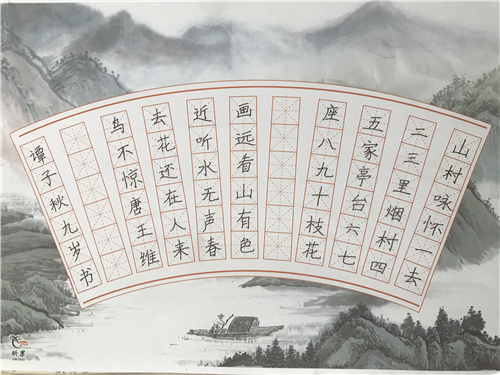 山村咏怀一去
二三里烟村四
五家亭台六七
座八九十枝花
画远看山有色
近听水无声春
去花还在人来
鸟不惊唐王维
谭子秋九岁书